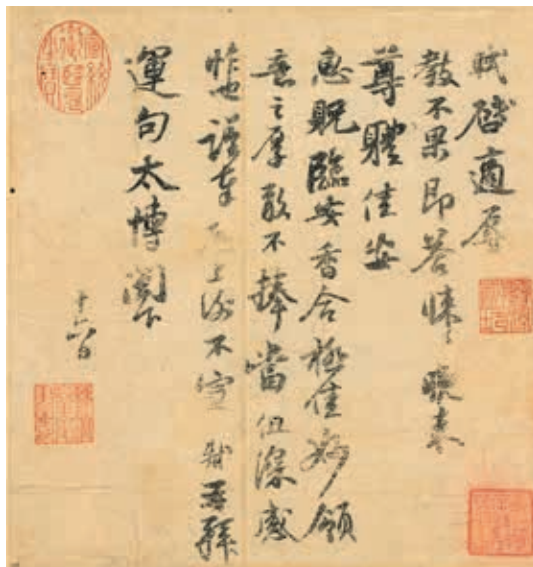 軾啓適辱
教不果即答悚悚晚來
尊體佳安
惠貺臨安香合極佳妙領
意之厚敢不捧當但深感
怍也謹奉啓上謝不宣 軾再拜
運句太博閣下
十六日
宣統御覽之寶